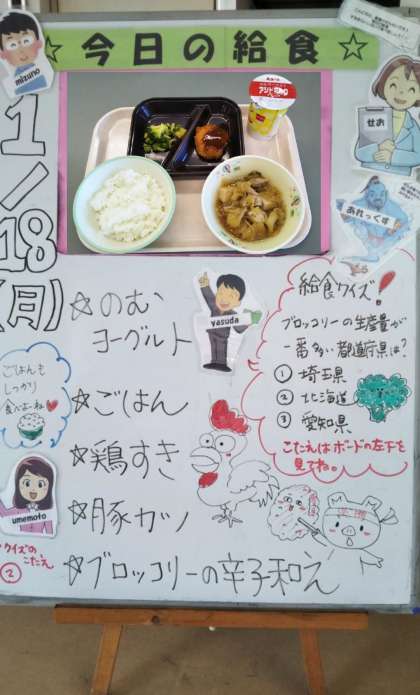 ☆今日の給食☆
mizuno
せお
あれっくす
1/18(月)
yasuda
☆のむ
ヨーグルト
☆ごはん
☆鶏すき
☆豚カツ
☆ブロッコリーの辛子和え
給食クイズ!
ブロッコリーの生産量が
一番多い都道府県は?
① 埼玉県
② 北海道
③ 愛知県
こたえはボードの左下を
見てね。
ごはんも
しっかり
食べよーね♡
umemoto
クイズの
こたえ
②